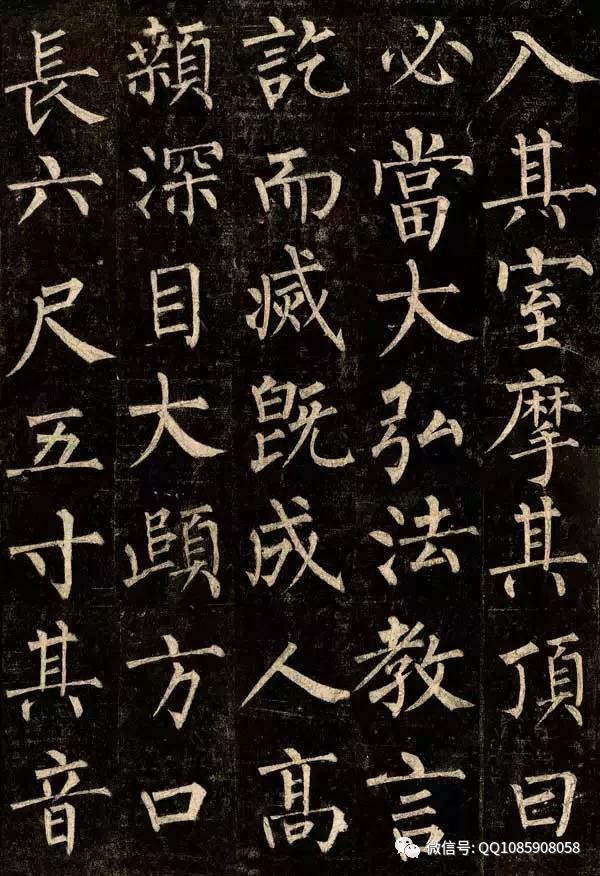 入其室摩其頂曰
必當大弘法教言
訖而滅既成人高
顙深目大頤方口
長六尺五寸其音
微信号: QQ1085908058